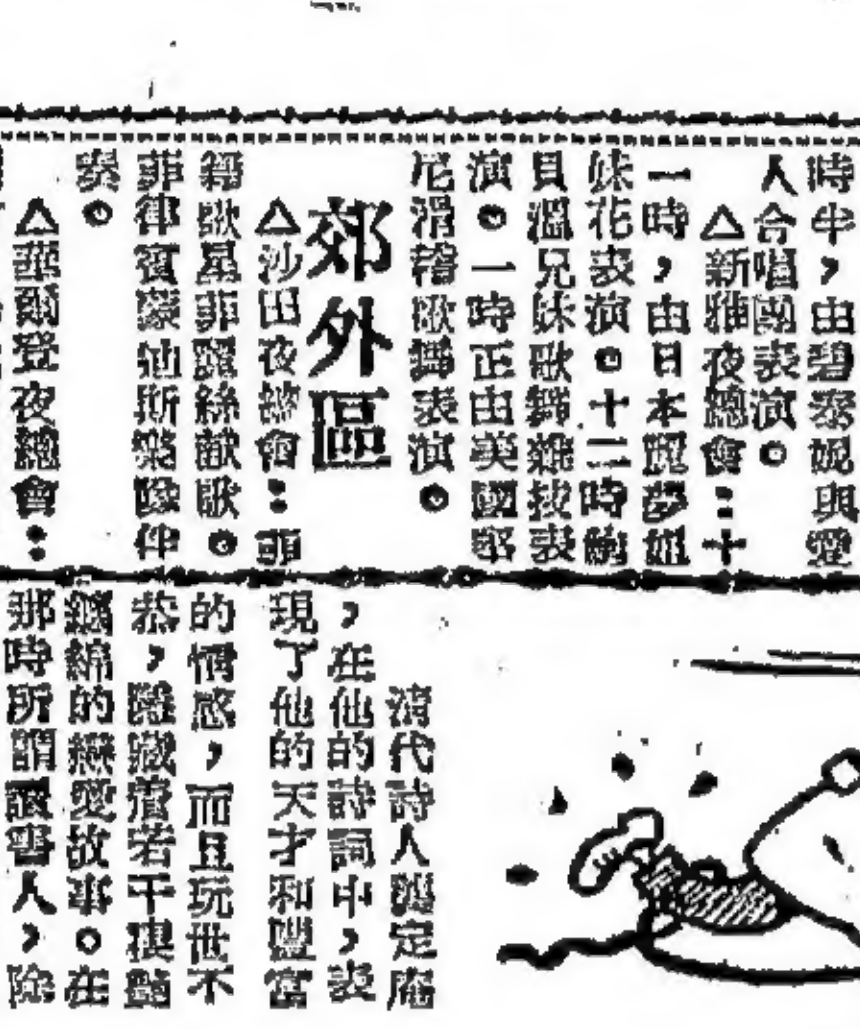 時半，由碧泰妮與愛
人合唱團表演。
△新雅夜總會：十
一時，由日本麗夢姐
妹花表演。十二時
貝溫兄妹歌舞雜技表
演。一時正由美國
尼滑稽歌舞表演。
郊外區
△沙田夜總會：菲
籍歌星菲麗絲献歌。
菲律賓蒙迪斯樂隊伴
奏。
△華爾登夜總會：
清代詩人龔定庵
，在他的詩詞中，表
現了他的天才和豐富
的情感，而且玩世不
恭，隱藏着若干
纏綿的戀愛故事。在
那時所謂讀書人，除